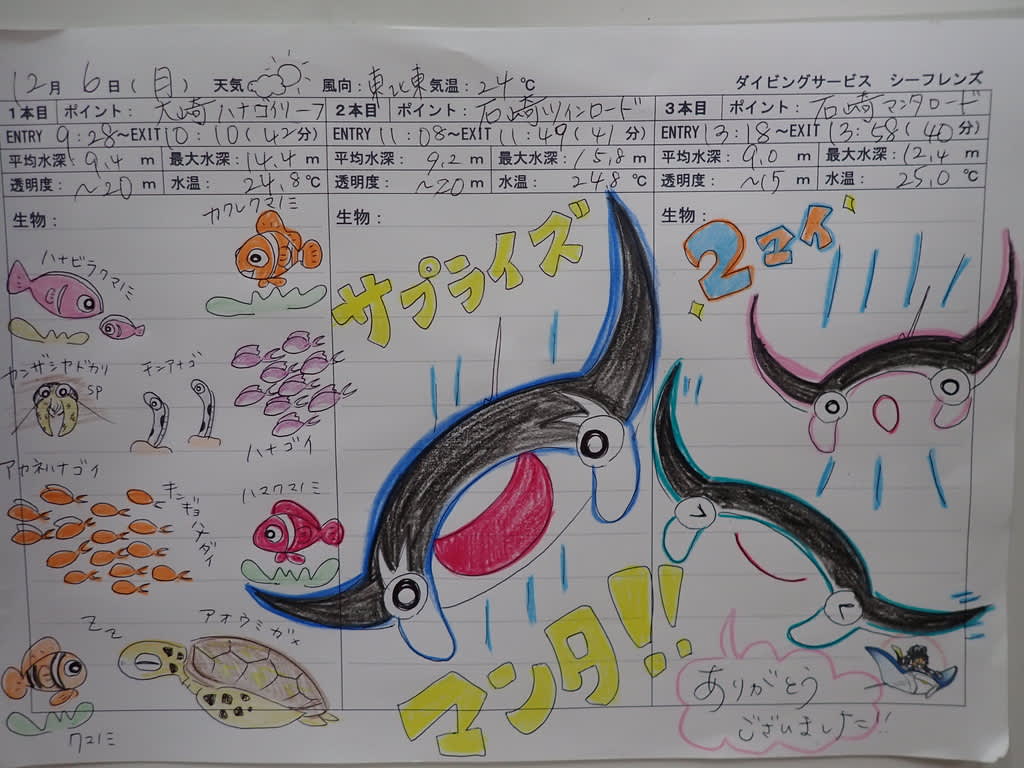 12月 6日(月) 天気 風向:東北東 気温:24℃ ダイビングサービス シーフレンズ
1本目 ポイント:大崎ハナゴイリーフ 2本目 ポイント:石崎ツインロード 3本目 ポイント:石崎マンタロード
ENTRY 9:28〜EXIT 10:10(42分) ENTRY 11:08〜EXIT 11:49(41分) ENTRY 13:18〜EXIT 13:58(40分)
平均水深:9.4 m 最大水深:14.4 m 平均水深:9.2 m 最大水深:15.8 m 平均水深:9.0 m 最大水深:12.4 m
透明度:〜20 m 水温:24.8℃ 透明度:〜20 m 水温:24.8℃ 透明度:〜15 m 水温:25.0℃
生物: 生物: 生物:
カクレクマノミ
ハナビラクマノミ
カンザシヤドカリ
SP
チンアナゴ
ハナゴイ
アカネハナゴイ
キンギョハナダイ
ハマクマノミ
クマノミ
ZZ
アオウミガメ
サプライズ
マンタ!!
2マイ
ありがとう
ございました!!